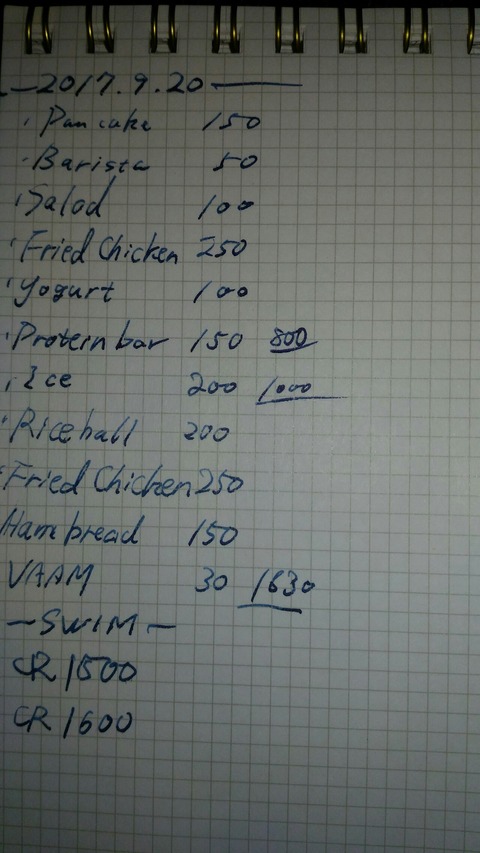 —2017.9.20——
・Pancake 150
・Barista 50
・Salad 100
・Fried Chicken 250
・Yogurt 100
・Protein bar 150 800
・Ice 200 1000
・Rice ball 200
・Fried Chicken 250
Ham bread 150
VAAM 30 1630
—SWIM—
CR 1500
CR 1600